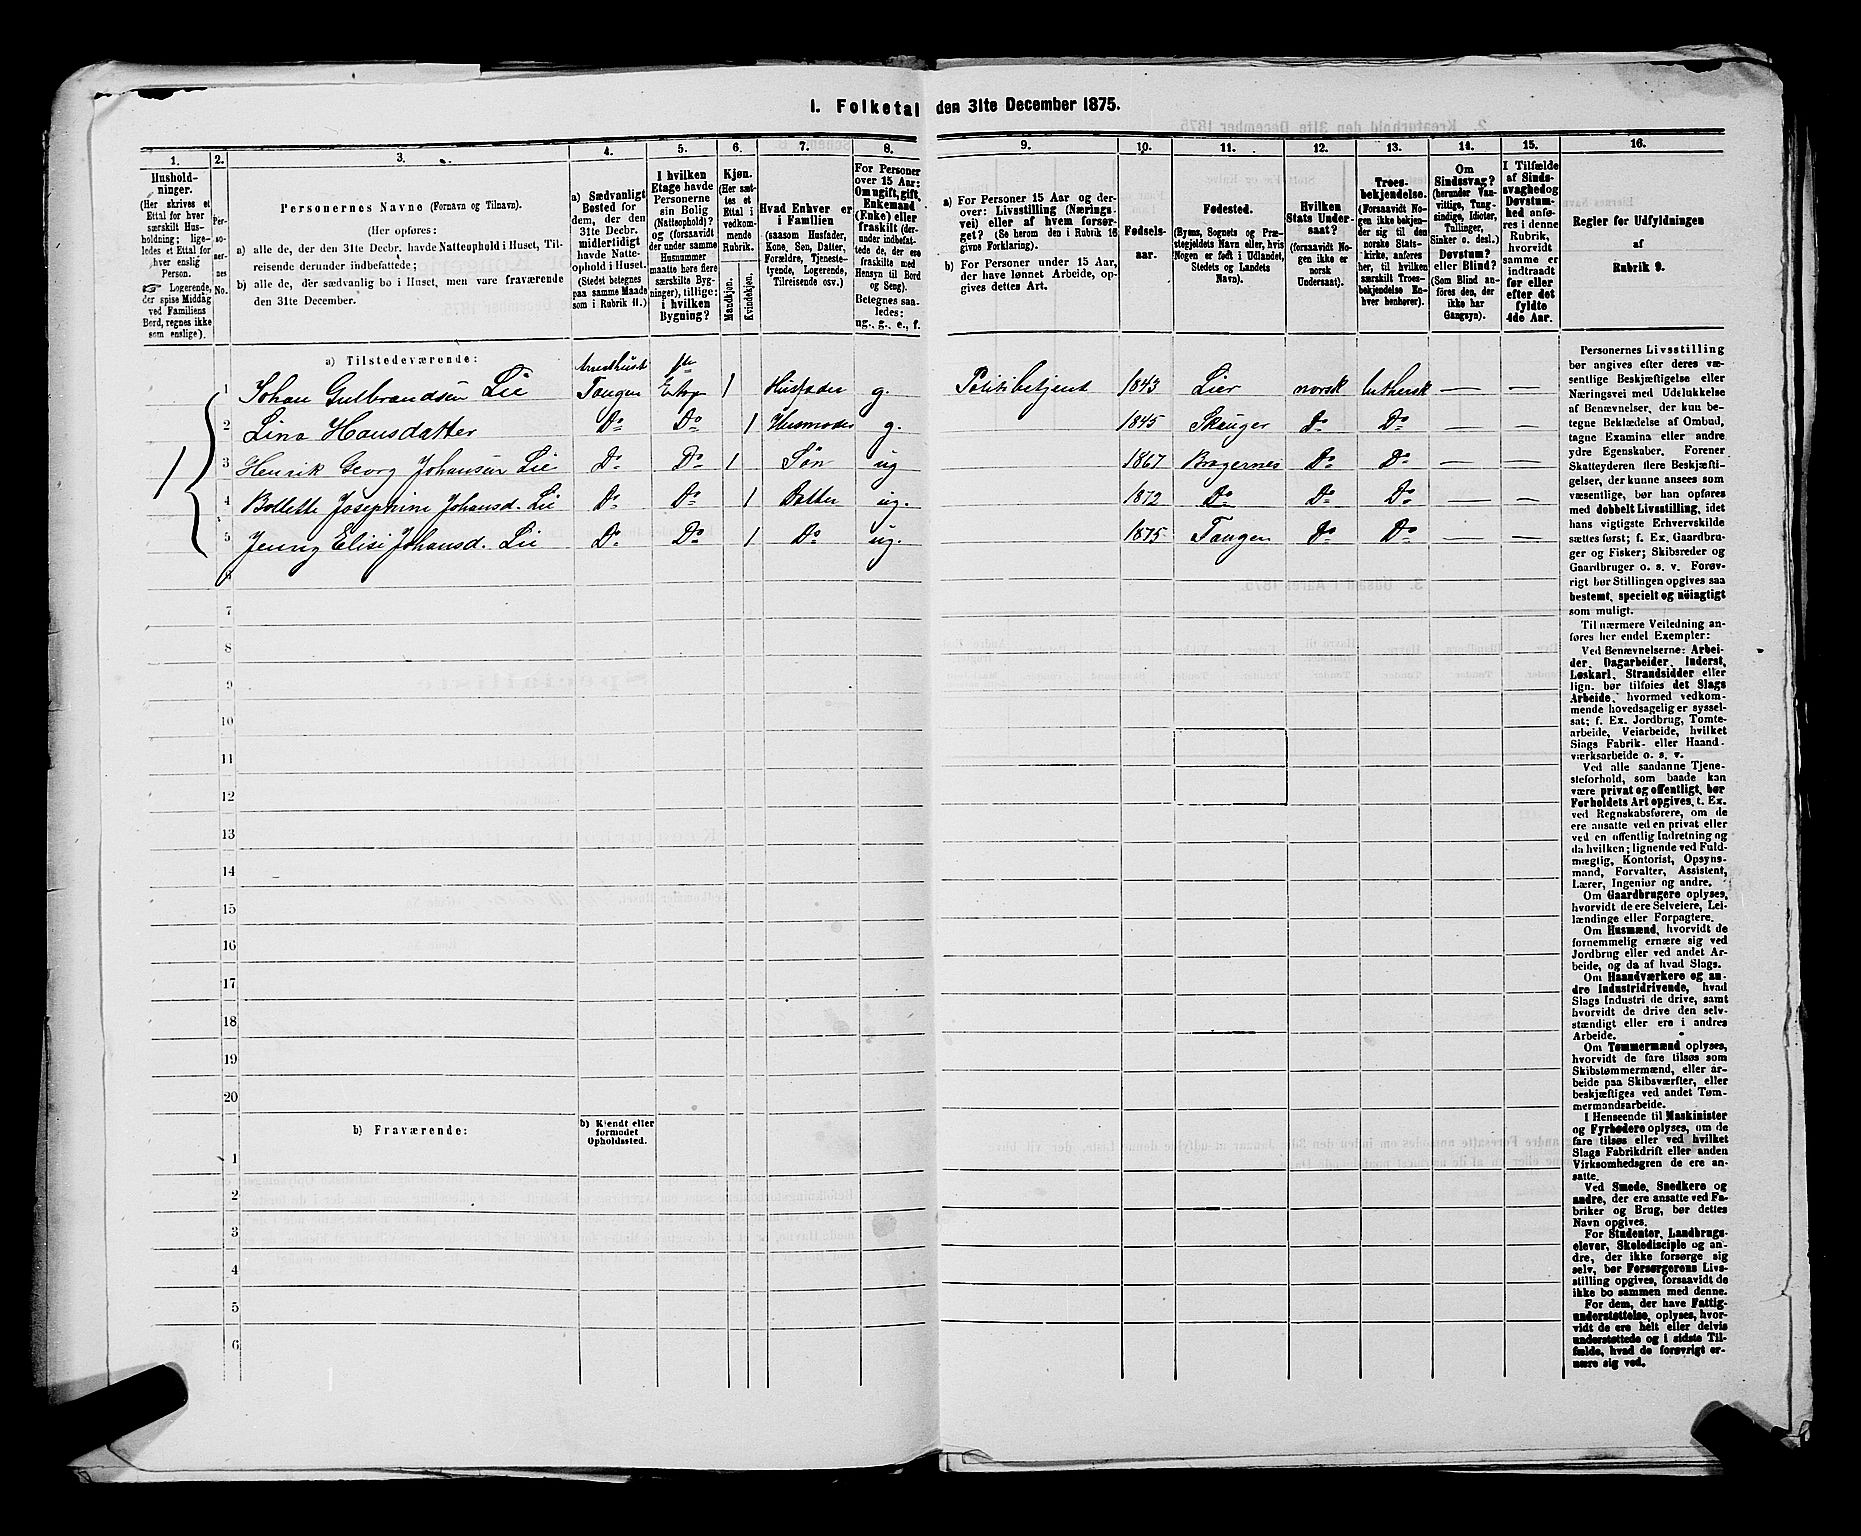 1. Folketal den 31te December 1875.
1. 2. 3. 4. 5. 6. 7. 8. 9. 10. 11. 12. 13. 14. 15. 16.
Hushold-
ninger.
(Her skrives et
Ettal for hver
særskilt Hus-
holdning; lige-
ledes et Ettal for
hver enslig
Person.
☞ Logerende,
der spise Middag
ved Familiens
Bord, regnes ikke
som enslige).
Per-
so-
ner-
nes
No.
Personernes Navne (Fornavn og Tilnavn).
(Her opføres:
a) alle de, der den 31te Decbr. havde Natteophold i Huset, Til-
reisende derunder indbefattede;
b) alle de, der sædvanlig bo i Huset, men vare fraværende
den 31te December.
a) Sædvanligt
Bosted for
dem, der den
31te Decbr.
midlertidigt
havde Natte-
ophold i Huset.
(Stedet betegnes
paa samme Maade
som i Rubrik 11.)
I hvilken
Etage havde
Personerne
sin Bolig
(Natteophold)?
og (forsaavidt
der under samme
Husnummer
maatte høre flere
særskilte Byg-
ninger), tillige:
i hvilken
Bygning?
Kjøn.
(Her sæt-
tes et
Ettal i
vedkom-
mende
Rubrik.
Mandkjøn.
Kvindekjøn.
Hvad Enhver er
i Familien
(saasom Husfader,
Kone, Søn, Datter,
Forældre, Tjeneste-
tyende, Logerende,
Tilreisende osv.)
For Personer
over 15 Aar:
Om ugift, gift,
Enkemand
(Enke) eller
fraskilt (der-
under indbefat-
tede de, der ere
fraskilte med
Hensyn til Bord
og Seng).
Betegnes saa-
ledes:
ug., g., e., f.
a) For Personer 15 Aar og der-
over: Livsstilling (Nærings-
vei) eller af hvem forsør-
get? (Se herom den i Rubrik 16
givne Forklaring).
b) For Personer under 15 Aar,
der have lønnet Arbeide, op-
gives dettes Art.
Fødsels-
aar.
Fødested.
(Byens, Sognets og Præ-
stegjeldets Navn eller, hvis
Nogen er født i Udlandet,
Stedets og Landets
Navn).
Hvilken
Stats Under-
saat?
(forsaavidt No-
gen ikke er
norsk
Undersaat).
Troes-
bekjendelse.
(Forsaavidt No-
gen ikke bekjen-
der sig til den
norske Stats-
kirke, anføres
her, til hvilken
særskilt Troes-
bekjendelse En-
hver henhører).
Om
Sindssvag?
(herunder Van-
vittige, Tung-
sindige, Idioter,
Tullinger,
Sinker o. desl.)
Døvstum?
eller Blind?
(Som Blind an-
føres den, der
ikke har
Gangsyn).
I Tilfælde
af Sinds-
svaghed og
Døvstum-
hed anfø-
res i denne
Rubrik,
hvorvidt
samme er
indtraadt
før eller
efter det
fyldte
4de Aar.
Regler for Udfyldningen
af
Rubrik 9.
a) Tilstedeværende:
1 Johan Gulbrandsen Lie Tangen 1ste Etage 1 Husfader g. Politibetjent 1843 Lier norsk luthersk — —
2 Lina Hansdatter Do Do 1 Husmoder g. 1845 Skauger Do Do — —
3 Henrik Georg Johansen Lie Do Do 1 Søn ug 1867 Bragernes Do Do — —
4 Bollette Josephine Johansd. Lie Do Do 1 Datter ug. 1872 Do Do Do — —
5 Jenny Elisi Johansd. Lie Do Do 1 Do ug. 1875 Tangen Do Do — —
1
6
7
8
9
10
11
12
13
14
15
16
17
18
19
20
b) Fraværende:
b) Kjendt eller
formodet
Opholdssted.
1
2
3
4
5
6
Personernes Livsstilling
bør angives efter deres væ-
sentlige Beskjæftigelse eller
Næringsvei med Udelukkelse
af Benævnelser, der kun be-
tegne Beklædelse af Ombud,
tagne Examina eller andre
ydre Egenskaber. Forener
Skatteyderen flere Beskjæfti-
gelser, der kunne ansees som
væsentlige, bør han opføres
med dobbelt Livsstilling, idet
hans vigtigste Erhvervskilde
sættes først; f. Ex. Gaardbru-
ger og Fisker; Skibsreder og
Gaardbruger o. s. v. Forøv-
rigt bør Stillingen opgives saa
bestemt, specielt og nöiagtigt
som muligt.
Til nærmere Veiledning an-
føres her endel Exempler:
Ved Benævnelserne: Arbei-
der, Dagarbeider, Inderst,
Løskarl, Strandsidder eller
lign. bør tilføies det Slags
Arbeide, hvormed vedkom-
mende hovedsagelig er syssel-
sat; f. Ex. Jordbrug, Tomte-
arbeide, Veiarbeide, hvilket
Slags Fabrik- eller Haand-
værksarbeide o. s. v.
Ved alle saadanne Tjene-
steforhold, som baade kan
være privat og offentligt, bør
Forholdets Art opgives, t. Ex.
ved Regnskabsførere, om de
ere ansatte ved en privat eller
ved en offentlig Indretning og
da hvilken; lignende ved Fuld-
mægtig, Kontorist, Opsyns-
mand, Forvalter, Assistent,
Lærer, Ingeniør og andre.
Om Gaardbrugere oplyses,
hvorvidt de ere Selveiere, Lei-
lændinge eller Forpagtere.
Om Husmænd, hvorvidt de
fornemmelig ernære sig ved
Jordbrug eller ved andet Ar-
beide, og da af hvad Slags.
Om Haandværkere og an-
dre Industridrivende, hvad
Slags Industri de drive, samt
hvorvidt de drive den selv-
stændigt eller ere i andres
Arbeide.
Om Tømmermænd oplyses,
hvorvidt de fare tilsøs som
Skibstømmermænd, eller ar-
beide paa Skibsværfter, eller
beskjæftiges ved andet Tøm-
mermandsarbeide.
I Henseende til Maskinister
og Fyrbødere oplyses, om de
fare tilsøs eller ved hvilket
Slags Fabrikdrift eller anden
Virksomhedsgren de ere an-
satte.
Ved Smede, Snedkere og
andre, der ere ansatte ved Fa-
briker og Brug, bør dettes
Navn opgives.
For Studenter, Landbrugs-
elever, Skoledisciple og an-
dre, der ikke forsørge sig
selv, bør Forsørgerens Livs-
stilling opgives, forsaavidt de
ikke bo sammen med denne.
For dem, der have Fattig-
understøttelse, oplyses, hvor-
vidt de ere helt eller delvis
understøttede og i sidste Til-
fælde, hvad de forøvrigt er-
nære sig ved.